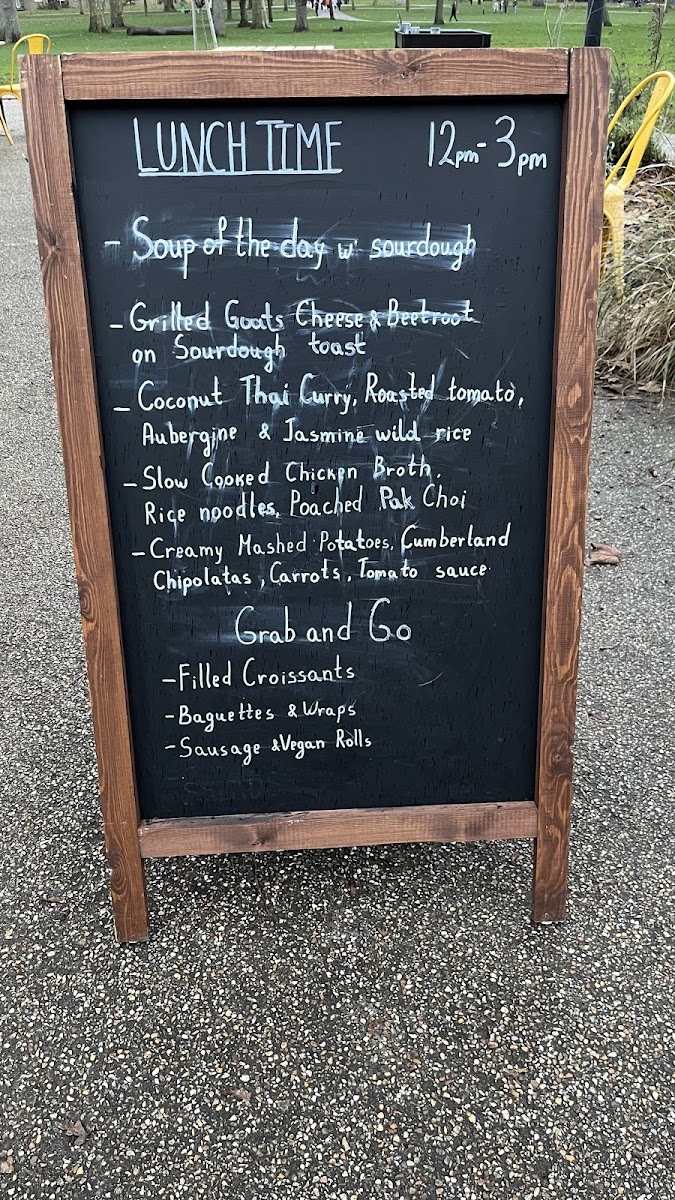 LUNCH TIME 12pm-3pm
- Soup of the day w' sourdough
- Grilled Goats Cheese & Beetroot
on Sourdough toast
- Coconut Thai Curry, Roasted tomato,
Aubergine & Jasmine wild rice
- Slow Cooked Chicken Broth,
Rice noodles, Poached Pak Choi
- Creamy Mashed Potatoes, Cumberland
Chipolatas, Carrots, Tomato sauce
Grab and Go
- Filled Croissants
- Baguettes & Wraps
- Sausage & Vegan Rolls